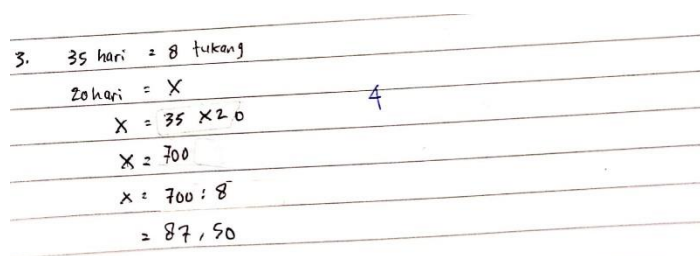 3. 35 hari = 8 tukang
20 hari = X
X = 35 X 20
4
X = 700
X = 700 : 8
= 87,50